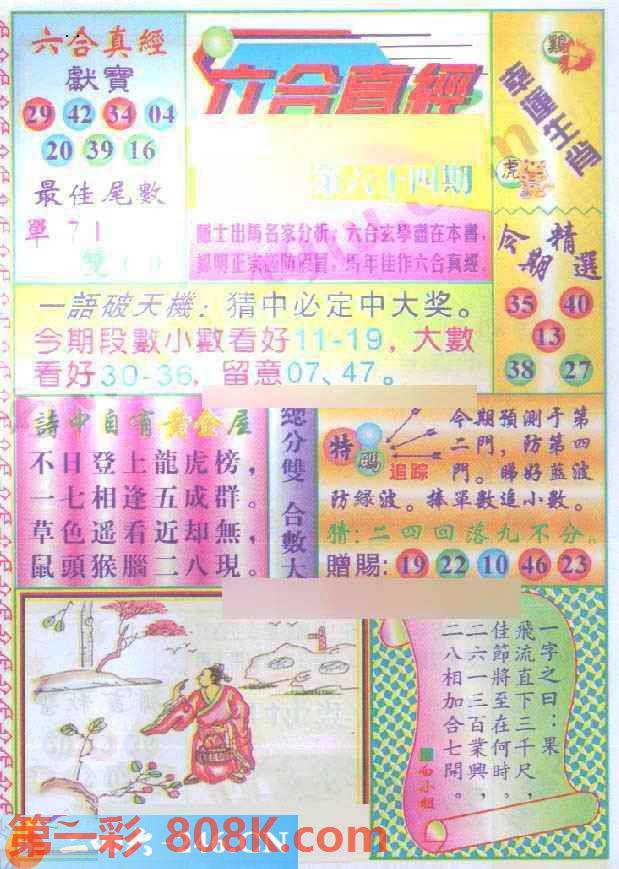 六合真經
獻寶
29 42 34 04
20 39 16
最佳尾數
單 71
雙
六合真經
第六十四期
隱士出馬名家分析，六合玄學盡在本書，
馬年佳作六合真經
鷄
虎
幸運生肖
今期精選
35 40
13
38 27
一語破天機：猜中必定中大奖。
今期段數小數看好11-19，大數
看好30-36，留意07、47。
詩中自有黄金屋
不日登上龍虎榜，
一七相逢五成群。
草色遥看近却無，
鼠頭猴腦二八現。
總分雙 合數大
特碼
追踪
今期預測于第
二門，防第四
門。睇好藍波
防緑波。捧單數追小數。
猜:二四回落九不分。
贈賜: 19 22 10 46 23
一字之曰：果
飛流直下三千尺，
佳節將至在何時。
二六一三百業興，
二八相加合七開。
白小姐
第一彩 808K.com